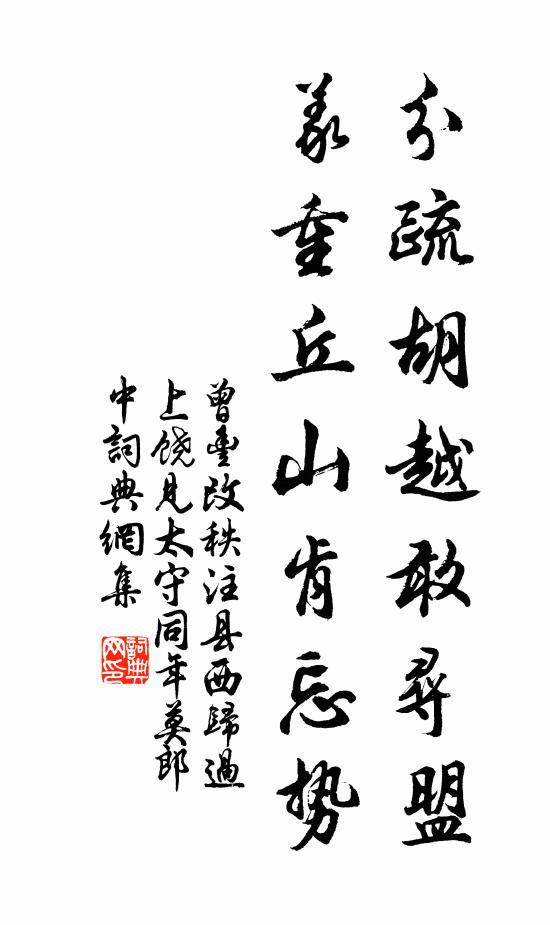 分疏胡越敢寻盟
义重丘山肯忘势
曾丰改秩注县西归過
上饶见太守同年莫郎
中詞典網集
詞典
网印